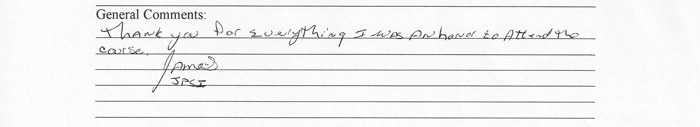 General Comments:
Thank you for everything I was an honor to Attend the
course.
James
JPSI